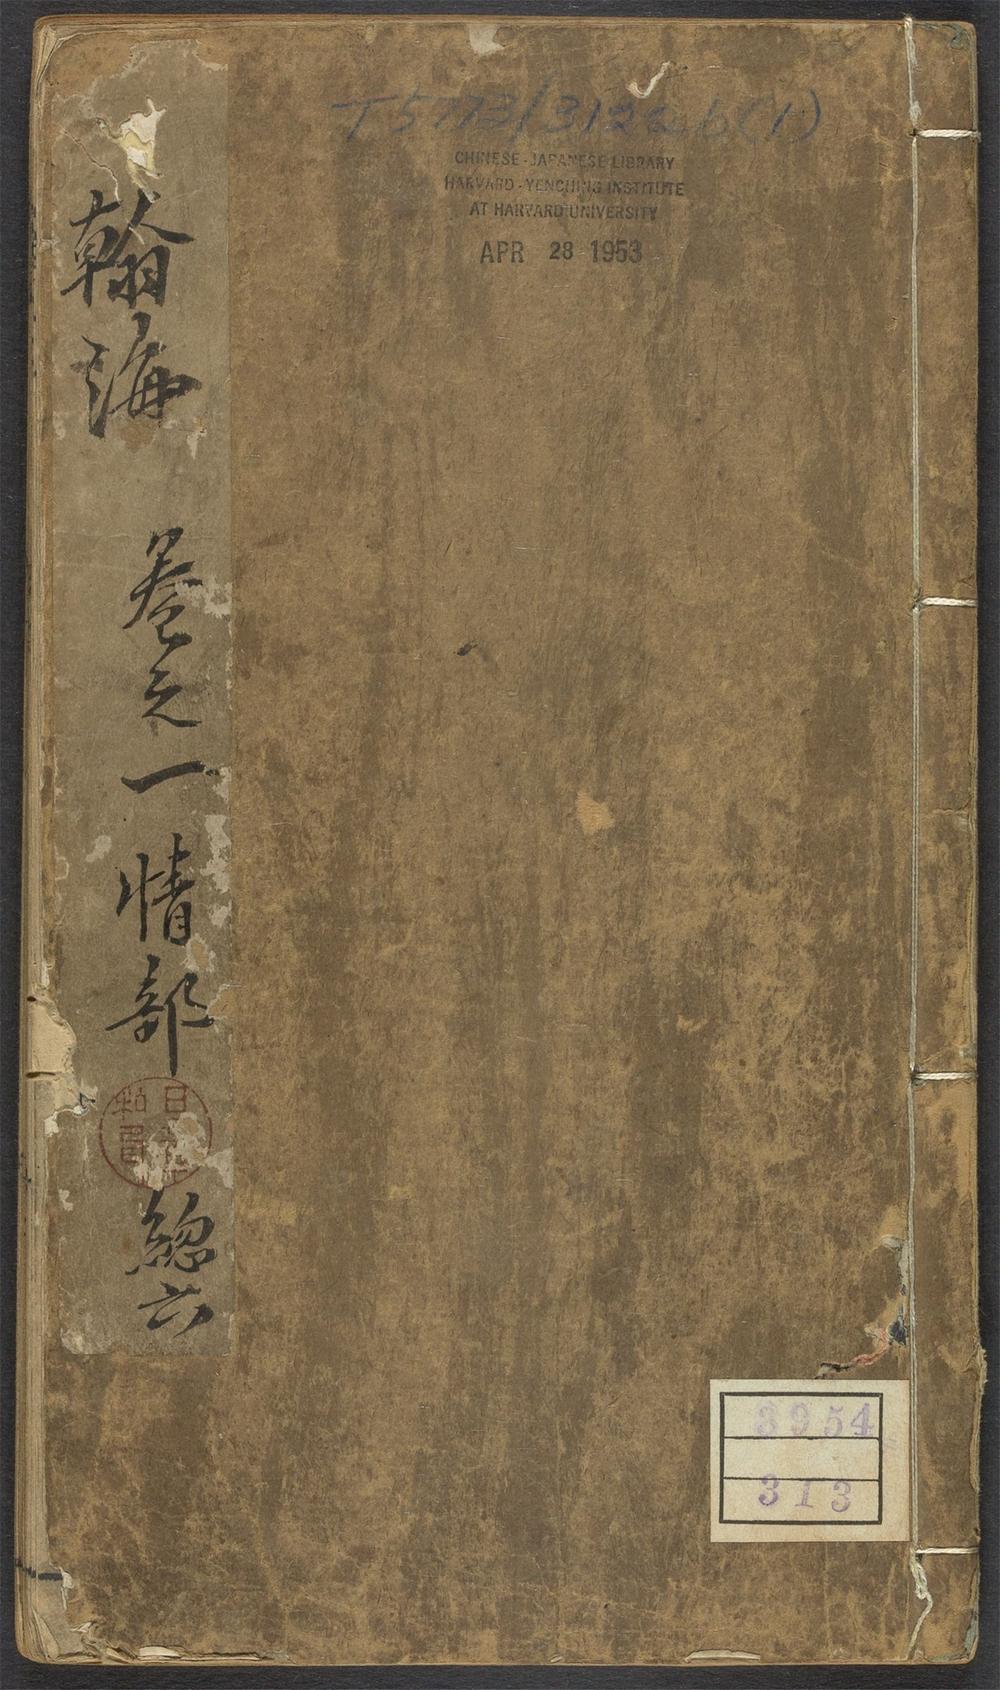 T5773/3122b(1)
CHINESE-JAPANESE LIBRARY
HARVARD-YENCHING INSTITUTE
AT HARVARD UNIVERSITY
APR 28 1953
翰海 卷之一 情部
總六
3954
313